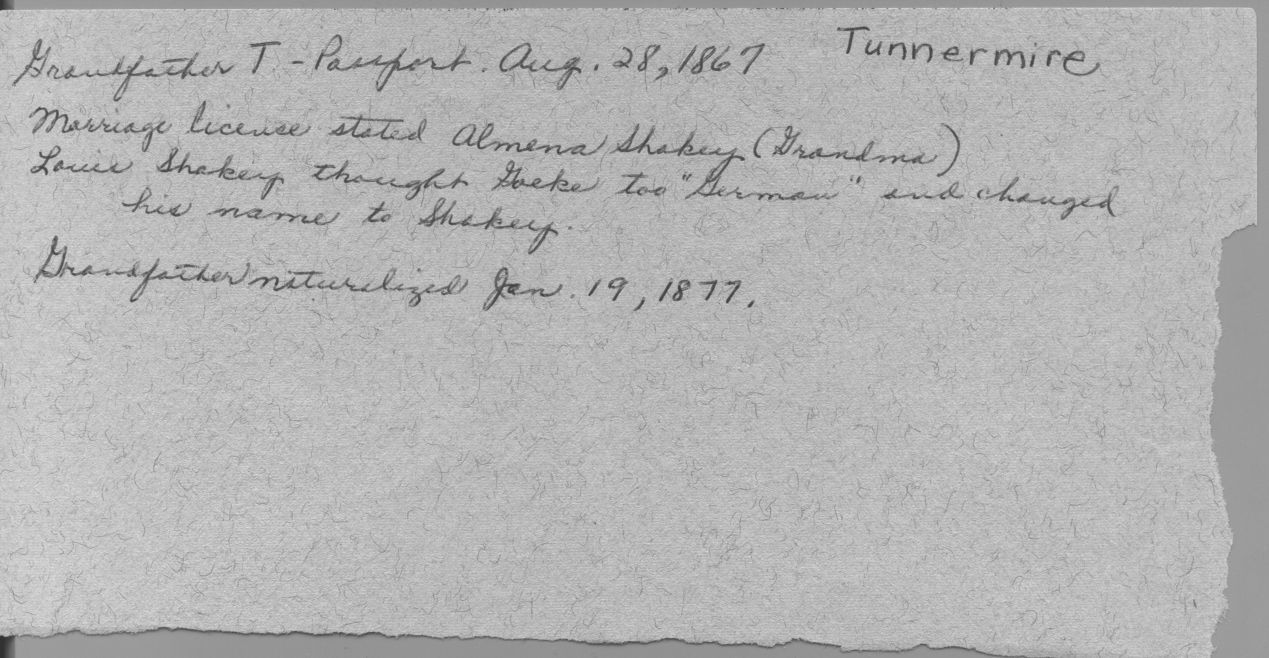 Grandfather T. - Passport. Aug. 28, 1867 Tunnermire
Marriage license stated Almena Shakey (Grandma)
Louis Shakey thought Goeke too "German" and changed
his name to Shakey.
Grandfather naturalized Jan. 19, 1877.